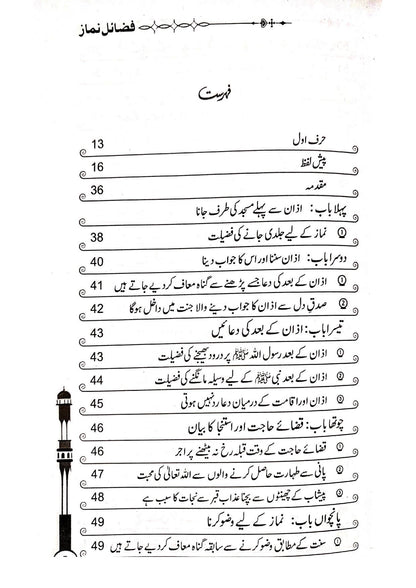 فضائل نماز
فہرست
حرف اول 13
پیش لفظ 16
مقدمہ 36
پہلا باب : اذان سے پہلے مسجد کی طرف جانا
نماز کے لیے جلدی جانے کی فضیلت 38
دوسرا باب : اذان سننا اور اس کا جواب دینا 40
① اذان کے بعد کی دعا جسے پڑھنے سے گناہ معاف کر دیے جاتے ہیں 41
② صدقِ دل سے اذان کا جواب دینے والا جنت میں داخل ہوگا 42
تیسرا باب : اذان کے بعد کی دعائیں 43
① اذان کے بعد رسول اللہ ﷺ پر درود بھیجنے کی فضیلت 43
② اذان کے بعد نبی ﷺ کے لیے وسیلہ مانگنے کی فضیلت 44
③ اذان اور اقامت کے درمیان دعا رد نہیں ہوتی 45
چوتھا باب : قضائے حاجت اور استنجا کا بیان 46
① قضائے حاجت کے وقت قبلہ رخ نہ بیٹھنے پر اجر 46
② پانی سے طہارت حاصل کرنے والوں سے اللہ تعالیٰ کی محبت 47
③ پیشاب کے چھینٹوں سے بچنا عذاب قبر سے نجات کا سبب ہے 48
پانچواں باب : نماز کے لیے وضو کرنا 49
① سنت کے مطابق وضو کرنے سے سابقہ گناہ معاف کر دیے جاتے ہیں 49